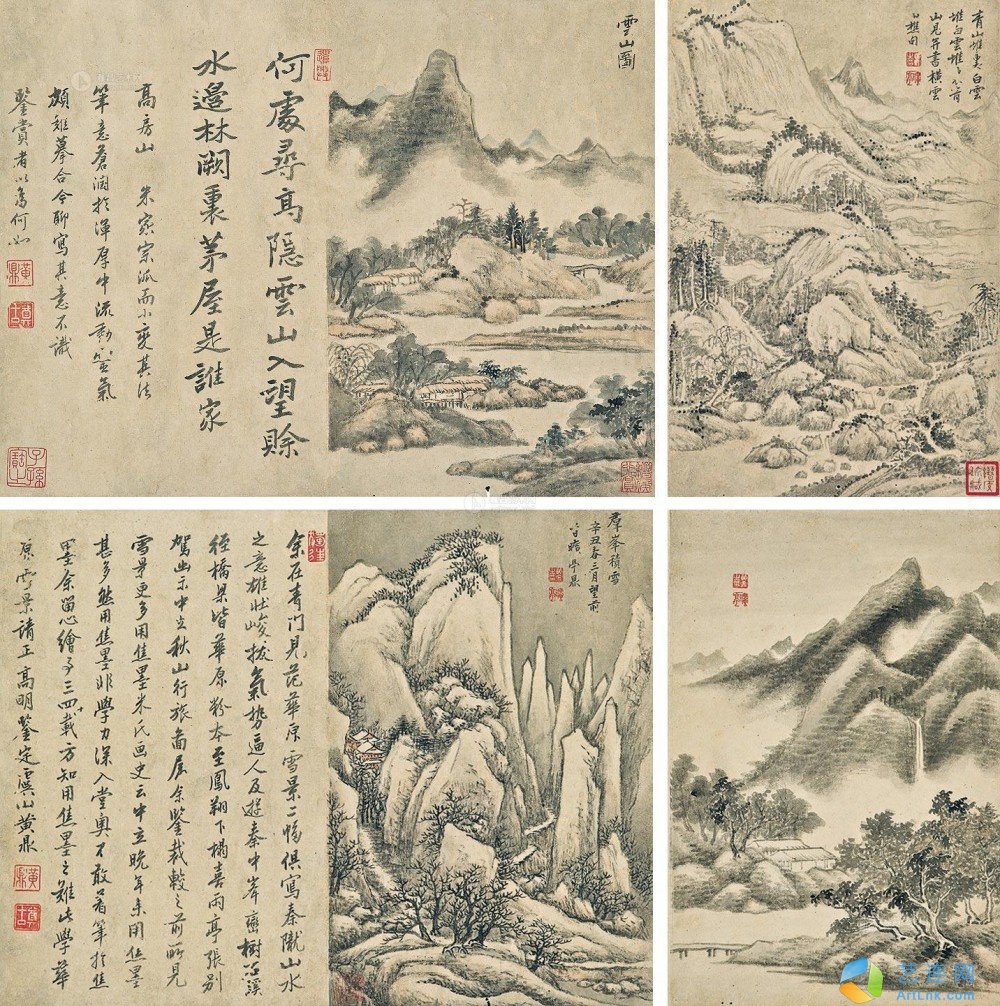 雲山圖
何處尋高隱雲山入望賒
水邊林闕裏茅屋是誰家
高房山 米家宗派而小變其法
筆意蒼潤於渾厚中流動空氣
頗難摹合今聊寫其意不識
鑒賞者以為何如
黃鼎
青山堆裏白雲
堆白雲堆
山見并書橫雲
山樵句
羣峯積雪
辛丑春三月望前
余在青門見范華原雪景一幅俱寫秦隴山水
之意雄壯峻拔氣勢逼人及遊秦中峯巒樹石溪
徑橋梁皆華原粉本至鳳翔下榻喜雨亭張別
駕出示中立秋山行旅圖屬余鑒裁較之前所見
雪景更多用焦墨米氏画史云中立晚年多用焦墨
甚多然用焦墨非學力深入堂奧不敢著筆於焦
墨余留心繪事三四載方知用焦墨之難此學華
原雪景請正高明鑒定虞山黃鼎
黃鼎
艺连网
ArtLnk.com